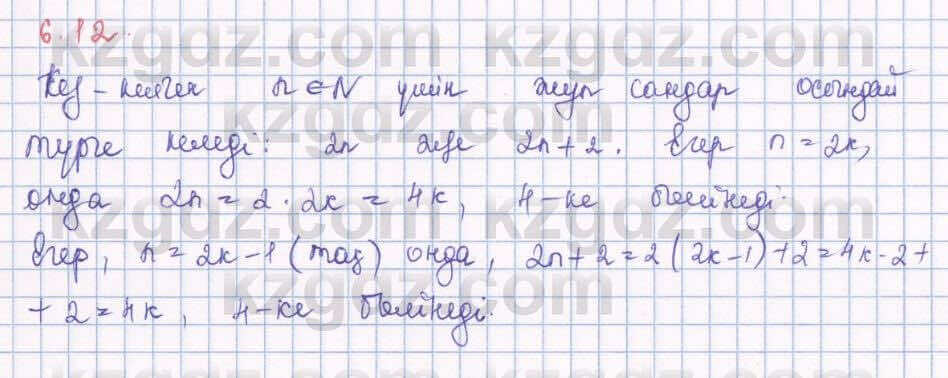 6.12.
Кез-келген n∈N үшін жұп сандар осындай
түрге келеді: 2n және 2n+2. Егер n=2k,
онда 2n=2·2k=4k, 4-ке бөлінеді.
Егер, n=2k-1 (тақ) онда, 2n+2=2(2k-1)+2=4k-2+
+2=4k, 4-ке бөлінеді.
kzgdz.com kzgdz.com
kzgdz.com kzgdz.com
kzgdz.com kzgdz.com
kzgdz.com kzgdz.com